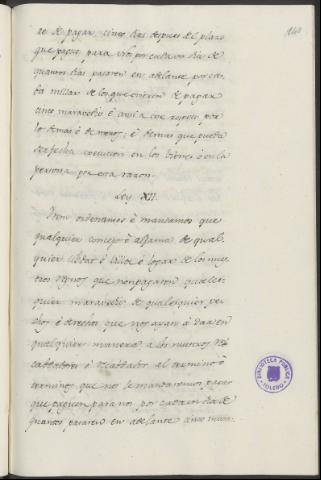 140
re de pagar, cinco dias despues del plazo
que pague para nos por cada un dia de
quantos dias pasaren en adelante por ca-
da millar de los que oviere de pagar
cinco maravedis e ansi a este respeto por
lo demas o de menos; e demas que pueda
ser fecha execucion en los bienes o en la
persona por esta razon.
Ley XII.
Itten ordenamos e mandamos que
qualquier concejo o aljama de qual-
quier cibdat o villa o logar de los nues-
tros regnos que non pagaren quales-
quier maravedis de qualesquier pe-
chos o derechos que nos ayan a dar en
qualquier manera a los nuestros re-
cabdadores o recabdador al termino o
terminos que nos le mandaremos pagar
que paguen para nos por cada un dia de
quantos pasaren en adelante cinco mara-
BIBLIOTECA PUBLICA
TOLEDO